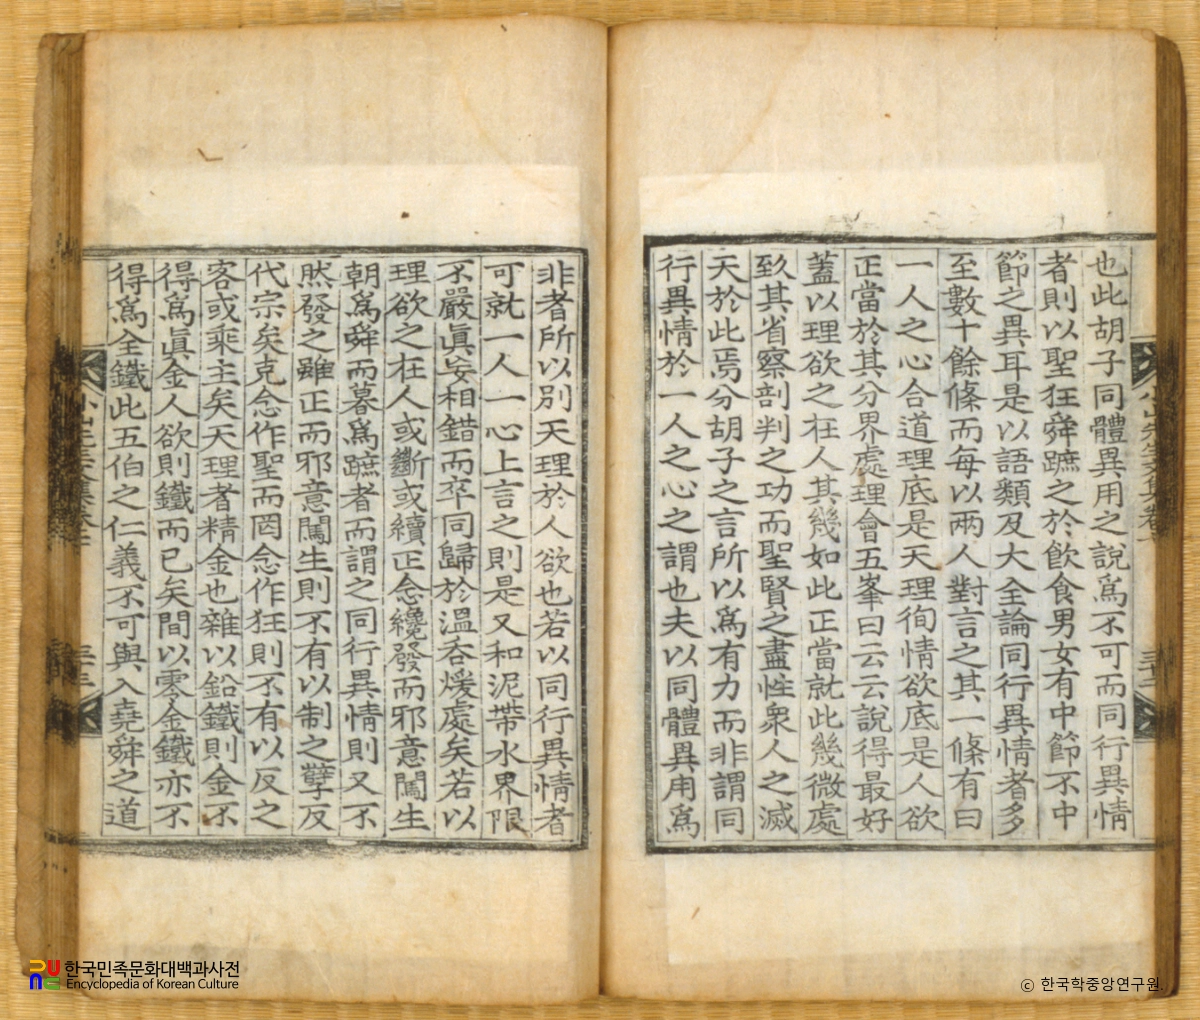 也此胡子同體異用之說爲不可而同行異情
者則以聖狂舜蹠之於飮食男女有中節不中
節之異耳是以語類及大全論同行異情者多
至數十餘條而每以兩人對言之其一條有曰
一人之心合道理底是天理徇情欲底是人欲
正當於其分界處理會五峯曰云云說得最好
蓋以理欲之在人其幾如此正當就此幾微處
致其省察剖判之功而聖賢之盡性衆人之滅
天於此焉分胡子之言所以爲有力而非謂同
行異情於一人之心之謂也夫以同體異用爲
非者所以別天理於人欲也若以同行異情者
可就一人一心上言之則是又和泥帶水界限
不嚴眞妄相錯而卒同歸於溫呑煖處矣若以
理欲之在人或斷或續正念纔發而邪意闖生
朝爲舜而暮爲蹠者而謂之同行異情則又不
然發之雖正而邪意闖生則不有以制之孽反
代宗矣克念作聖而罔念作狂則不有以反之
客或乘主矣天理者精金也雜以鉛鐵則金不
得爲眞金人欲則鐵而已矣間以零金鐵亦不
得爲全鐵此五伯之仁義不可與入堯舜之道
한국민족문화대백과사전
Encyclopedia of Korean Culture
ⓒ 한국학중앙연구원.